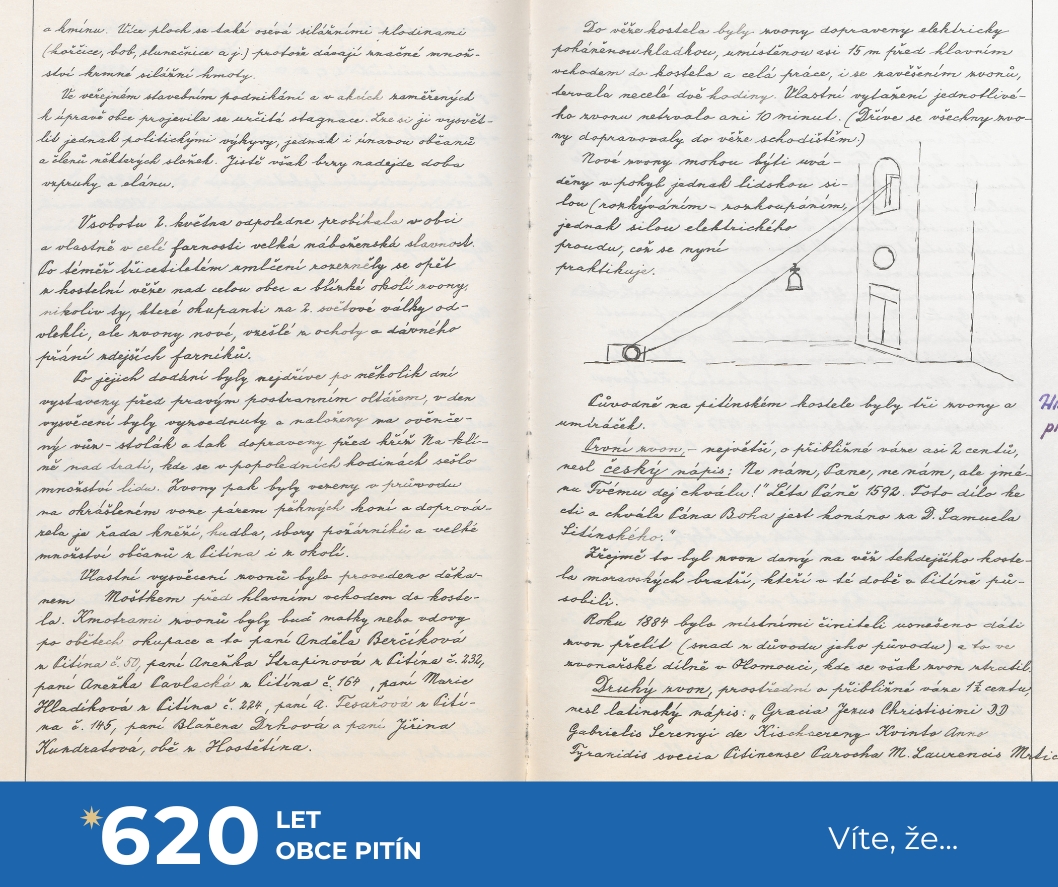 a kmínu. Více ploch se také osévá silážními plodinami
(hořčice, bob, slunečnice a j.) protože dávají značné množ-
ství krmné silážní hmoty.
Ve veřejném stavebním podnikání a v akcích zaměřených
k úpravě obce projevila se určitá stagnace. Lze si ji vysvět-
lit jednak politickými výkyvy, jednak i únavou občanů
a členů některých složek. Jistě však brzy nadejde doba
vzpruhy a elánu.
V sobotu 2. května odpoledne probíhala v obci
a vlastně v celé farnosti velká náboženská slavnost.
Po téměř třicetiletém umlčení rozezněly se opět
z kostelní věže nad celou obec a blízké okolí zvony,
nikoliv ty, které okupanti za 2. světové války od-
vlekli, ale zvony nové, vzešlé z ochoty a dávného
přání zdejších farníků.
Po jejich dodání byly nejdříve po několik dní
vystaveny před pravým postranním oltářem, v den
vysvěcení byly vyzvednuty a naloženy na ověnče-
ný vůz - stolák a tak dopraveny před kříž Na kli-
ně nad tratí, kde se v popoledních hodinách sešlo
množství lidu. Zvony pak byly vezeny v průvodu
na okrášleném voze párem pěkných koní a doprová-
zela je řada kněží, hudba, sbory požárníků a velké
množství občanů z Pitína i z okolí.
Vlastní vysvěcení zvonů bylo provedeno děka-
nem Moštkem před hlavním vchodem do koste-
la. Kmotrami zvonů byly buď matky nebo vdovy
po obětech okupace a to paní Anděla Berčíková
z Pitína č. 50, paní Anežka Strapinová z Pitína č. 232,
paní Anežka Pavlacká z Pitína č. 164, paní Marie
Hladíková z Pitína č. 224, paní A. Tesařová z Pití-
na č. 145, paní Blažena Drhová a paní Jiřina
Kundratová, obě z Hostětína.
Do věže kostela byly zvony dopraveny elektricky
poháněnou kladkou, umístěnou asi 15 m před hlavním
vchodem do kostela a celá práce, i se zavěšením zvonů,
tervala necelé dvě hodiny. Vlastní vytažení jednotlivé-
ho zvonu netrvalo ani 10 minut. (Dříve se všechny zvo-
ny dopravovaly do věže schodištěm.)
Nové zvony mohou býti uvá-
děny v pohyb jednak lidskou si-
lou (rozkýváním - rozhoupáním,
jednak silou elektrického
proudu, což se nyní
praktikuje.
Původně na pitínském kostele byly tři zvony a
umíráček.
První zvon, - největší, o přibližné váze asi 2 centů,
nesl český nápis: Ne nám, Pane, ne nám, ale jmé-
nu Tvému dej chválu!" Léta Páně 1592. Toto dílo ke
cti a chvále Pána Boha jest konáno za D. Samuela
Pitínského."
Zřejmě to byl zvon daný na věž tehdejšího koste-
la moravských bratří, kteří v té době v Pitíně pů-
sobili.
Roku 1884 bylo místními činiteli usneseno dáti
zvon přelít (snad z důvodu jeho původu) a to ve
zvonařské dílně v Olomouci, kde se však zvon ztratil.
Druhý zvon, prostřední o přibližné váze 1½ centu,
nesl latinský nápis: „Gracia Jezus Christisimi DD
Gabrielis Serenyi de Kischsereny Kvinto Anno
Tyranidis svecia Pitinense Parocha M. Laurencis
620 LET
OBCE PITÍN
Víte, že...